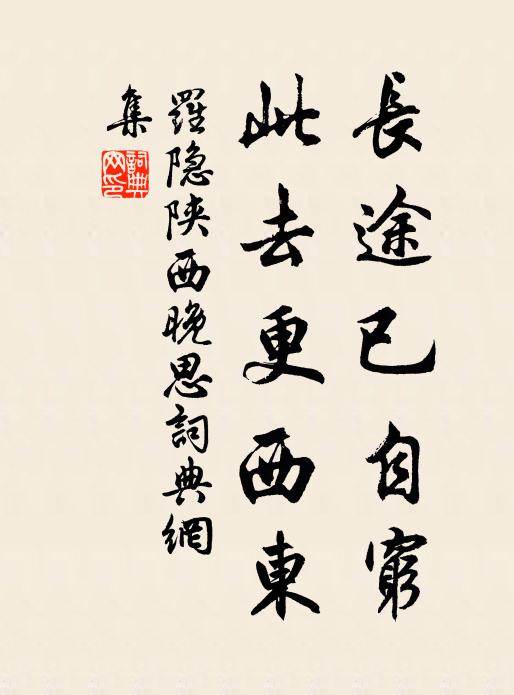 長途已自窮
此去更西東
羅隐陕西晚思詞典網
集
詞典網印